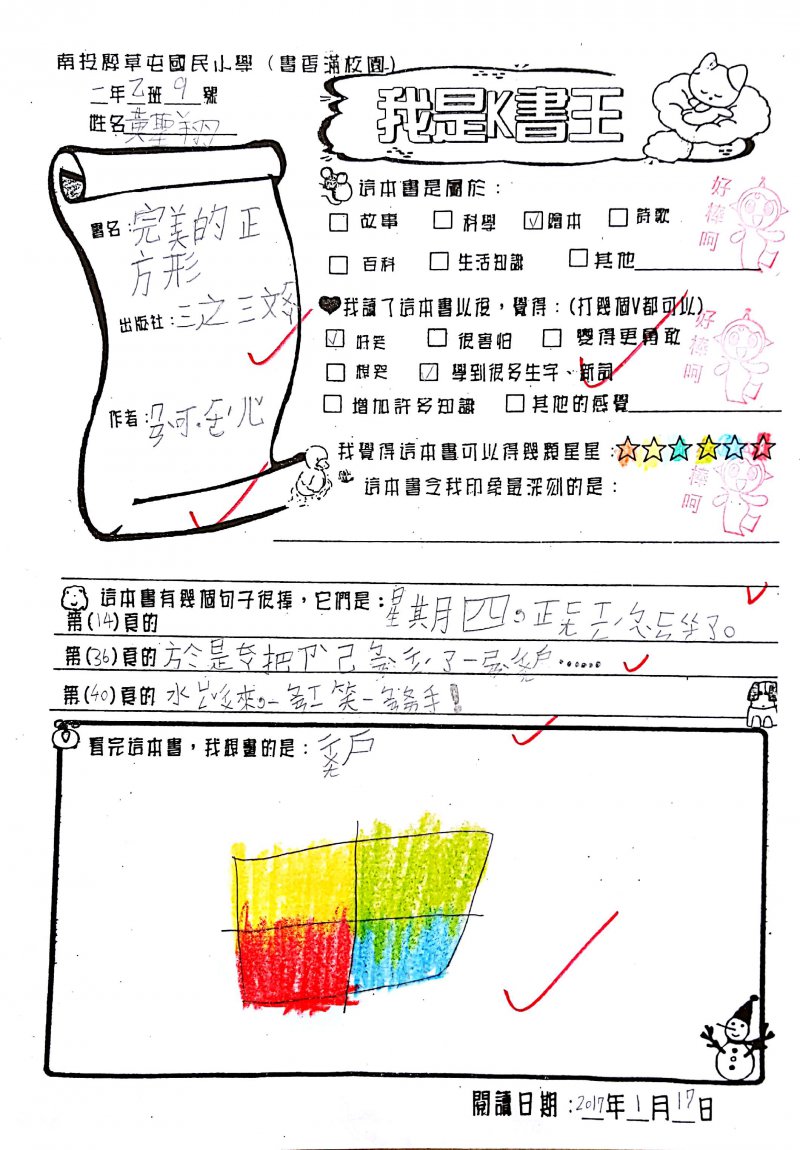 南投縣草屯國民小學（書香滿校園）
二年乙班9號
姓名黃聖翔
我是K書王
書名：完美的正
方形
出版社：三之三文
作者：
這本書是屬於：
□故事 □科學 ☑繪本 □詩歌
□百科 □生活知識 □其他
好棒呵
♥我讀了這本書以後，覺得：(打幾個V都可以)
☑好笑 □很害怕 □變得更勇敢
□想哭 ☑學到很多生字、新詞
□增加許多知識 □其他的感覺
好棒呵
我覺得這本書可以得幾顆星星：☆☆☆☆☆☆
這本書令我印象最深刻的是：
好棒呵
這本書有幾個句子很棒，它們是：星期四，正
第(14)頁的
第(36)頁的 於是 把 己 了一
第(40)頁的 水 來， 笑 手！
看完這本書，我想畫的是： 戶
閱讀日期：2017年1月17日